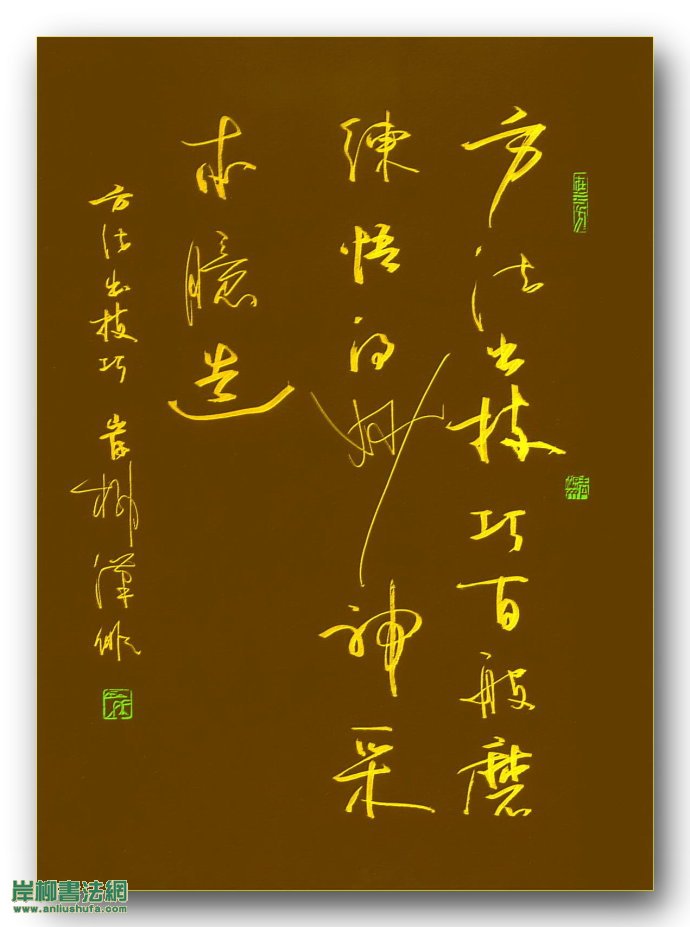 方法出技巧百般磨
練悟得妙神采
求臆造
方法出技巧 岸柳漢俤
岸柳書法網
www.anliushufa.com